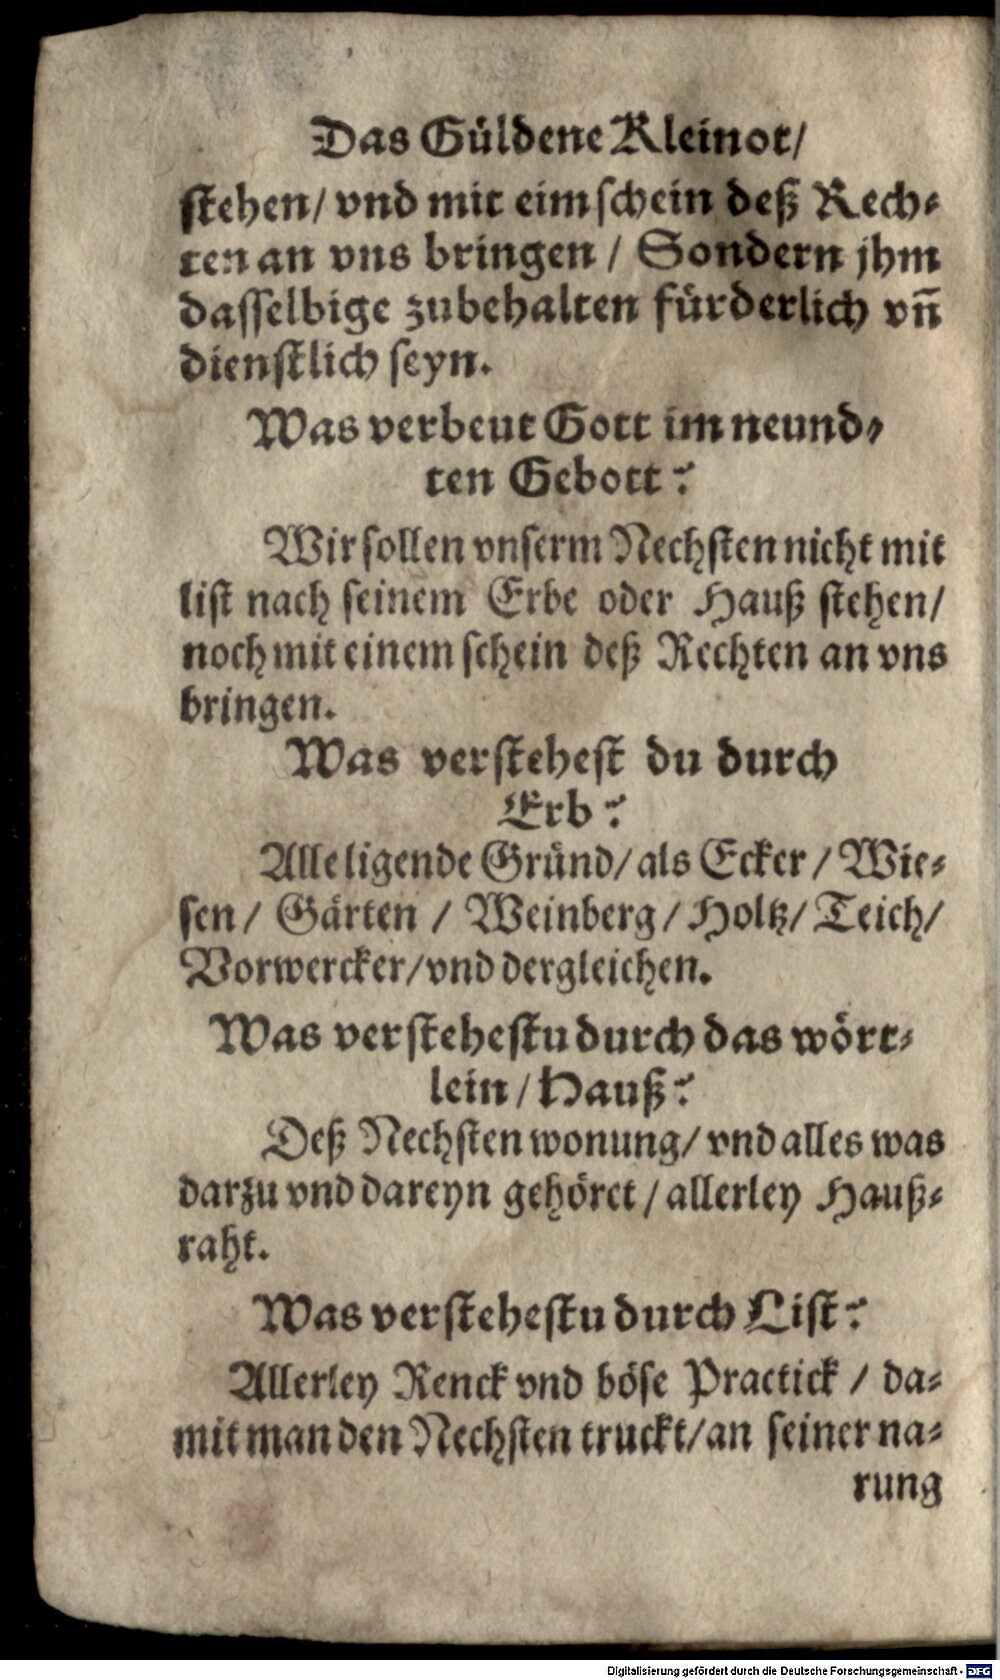 Das Güldene Kleinot/
stehen/ vnd mit eim schein deß Rech⸗
ten an vns bringen / Sondern jhm
dasselbige zubehalten fürderlich vn̄
dienstlich seyn.
Was verbeut Gott im neund⸗
ten Gebott?
Wir sollen vnserm Nechsten nicht mit
list nach seinem Erbe oder Hauß stehen/
noch mit einem schein deß Rechten an vns
bringen.
Was verstehest du durch
Erb?
Alle ligende Gründ/ als Ecker / Wie⸗
sen / Gärten / Weinberg / Holtz/ Teich/
Vorwercker/ vnd dergleichen.
Was verstehestu durch das wört⸗
lein / Hauß?
Deß Nechsten wonung/ vnd alles was
darzu vnd dareyn gehöret / allerley Hauß⸗
raht.
Was verstehestu durch List?
Allerley Renck vnd böse Practick / da⸗
mit man den Nechsten truckt/ an seiner na⸗
rung
Digitalisierung gefördert durch die Deutsche Forschungsgemeinschaft - DFG